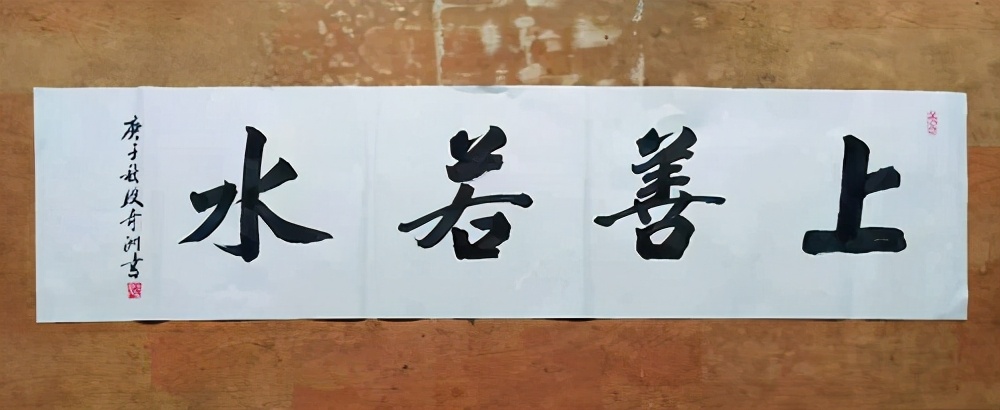 上善若水
庚子秋段奇洲书